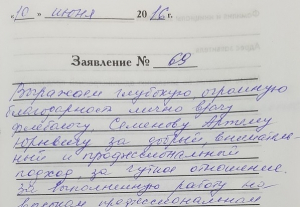 «10» июня 2016 г.
Заявление № 69
Выражаем глубокую огромную
благодарность лично врачу
флебологу Семенову Артему
Юрьевичу за добрый, внимате-
ный и профессиональный
подход, за чуткое отношение,
за выполненную работу на
высоком профессиональном